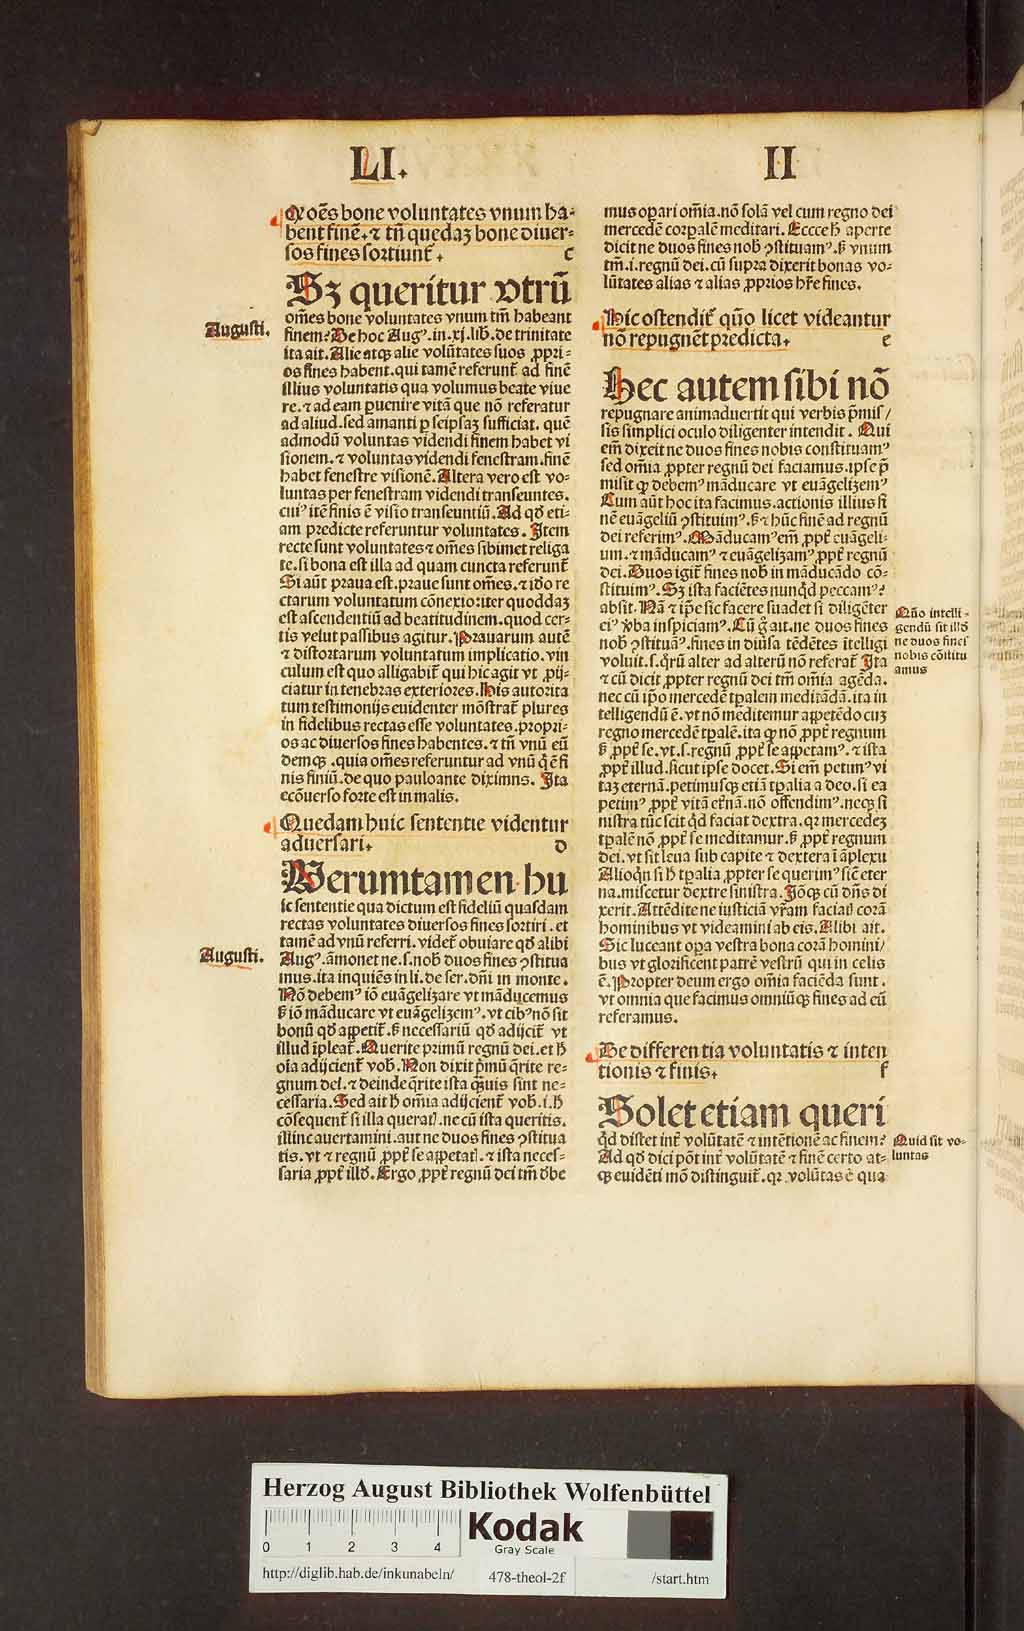 LI.
II
Qꝙ oēs bone voluntates vnum ha-
bent finē. ⁊ tn̄ quedaʒ bone diuer-
sos fines sortiunt̄. c
Sʒ queritur vtrū
om̄es bone voluntates vnum tm̄ habeant
finem? De hoc Augꝰ. in. xj. lib̄. de trinitate
Augusti.
ita ait. Alie atqꝫ alie volūtates suos ꝓpri-
os fines habent. qui tamē referunt̄ ad finē
illius voluntatis qua volumus beate viue
re. ⁊ ad eam ꝑuenire vitā que nō referatur
ad aliud. sed amanti ꝑ seipsaʒ sufficiat. quē
admodū voluntas videndi finem habet vi
sionem. ⁊ voluntas videndi fenestram. finē
habet fenestre visionē. Altera vero est vo-
luntas per fenestram videndi transeuntes.
cuiꝰ itē finis ē visio transeuntiū. Ad qd̄ eti-
am predicte referuntur voluntates. Item
recte sunt voluntates ⁊ om̄es sibimet religa
te. si bona est illa ad quam cuncta referunt̄
Si aūt praua est. praue sunt om̄es. ⁊ id̄o re
ctarum voluntatum cōnexio: iter quoddaʒ
est ascendentiū ad beatitudinem. quod cer-
tis velut passibus agitur. Prauarum autē
⁊ distortarum voluntatum implicatio. vin
culum est quo alligabit̄ qui hic agit vt ꝓij-
ciatur in tenebras exteriores. His autorita
tum testimonijs euidenter mōstrat̄ plures
in fidelibus rectas esse voluntates. propri-
os ac diuersos fines habentes. ⁊ tn̄ vnū eū
demqꝫ. quia om̄es referuntur ad vnū q̄ ē fi
nis finiū. de quo pauloante diximns. Ita
ecōuerso forte est in malis.
Quedam huic sententie videntur
aduersari. d
Verumtamen hu
ic sententie qua dictum est fideliū quasdam
rectas voluntates diuersos fines sortiri. et
tamē ad vnū referri. videt̄ obuiare qd̄ alibi
Augusti.
Augꝰ. āmonet ne. s. nob̄ duos fines ꝯstitua
mus. ita inquiēs in li. de ser. dn̄i in monte.
Nō debemꝰ iō euāgelizare vt māducemus
s̄ iō māducare vt euāgelizemꝰ. vt cibꝰ nō sit
bonū qd̄ appetit̄. s̄ necessariū qd̄ adijcit̄ vt
illud īpleat̄. Querite primū regnū dei. et h̄
oīa adijcient̄ vob̄. Non dixit p̄mū q̄rite re-
gnum dei. ⁊ deinde q̄rite ista qꝫuis sint ne-
cessaria. Sed ait h̄ om̄ia adijcient̄ vob̄. i. h̄
cōsequent̄ si illa querat̄. ne cū ista queritis.
illinc auertamini. aut ne duos fines ꝯstitua
tis. vt ⁊ regnū ꝓpt̄ se appetat̄. ⁊ ista neces-
saria ꝓpt̄ illd̄. Ergo ꝓpt̄ regnū dei tm̄ d̄be
mus oꝑari om̄ia. nō solā vel cum regno dei
mercedē corꝑalē meditari. Eccce h̄ aperte
dicit ne duos fines nob̄ ꝯstituamꝰ. s̄ vnum
tm̄. i. regnū dei. cū supra dixerit bonas vo-
lūtates alias ⁊ alias ꝓprios hr̄e fines.
Hic ostendit̄ qūo licet videantur
nō repugnēt predicta. e
Hec autem sibi nō
repugnare animaduertit qui verbis p̄mis/
sis simplici oculo diligenter intendit. Qui
em̄ dixeit ne duos fines nobis constituamꝰ
sed om̄ia ꝓpter regnū dei faciamus. ipse p̄
misit qꝙ debemꝰ māducare vt euāgelizemꝰ
Cum aūt hoc ita facimus. actionis illius fi
nē euāgeliū ꝯstituimꝰ. s̄ ⁊ hūc finē ad regnū
dei referimꝰ. Māducamꝰ em̄ ꝓpt̄ euāgeli-
um. ⁊ māducamꝰ ⁊ euāgelizamꝰ ꝓpt̄ regnū
dei. Duos igit̄ fines nob̄ in māducādo cō-
stituimꝰ. Sʒ ista faciētes nunqd̄ peccamꝰ?
absit. Nā ⁊ ip̄e sic facere suadet si diligēter
eiꝰ v̄ba inspiciam̄ꝰ. Cū g̊ ait. ne duos fines
nob̄ ꝯstituāꝰ. fines in diūsa tēdētes ītelligi
voluit. s. qr̄ū alter ad alterū nō referat̄ Ita
⁊ cū dicit ꝓpter regnū dei tm̄ om̄ia agēda.
nec cū ip̄o mercedē tꝑalem meditādā. ita in
telligendū ē. vt nō meditemur appetēdo cuʒ
regno mercedē tꝑalē. ita qꝙ nō ꝓpt̄ regnum
s̄ ꝓpt̄ se. vt. s. regnū ꝓpt̄ se appetamꝰ. ⁊ ista
ꝓpt̄ illud. sicut ipse docet. Si em̄ petimꝰ vi
taʒ eternā. petimusqꝫ etiā tꝑalia a deo. si ea
petimꝰ ꝓpt̄ vitā et̄nā. nō offendimꝰ. neqꝫ si
nistra tūc scit qd̄ faciat dextra. qꝛ mercedeʒ
tꝑalē nō ꝓpt̄ se meditamur. s̄ ꝓpt̄ regnum
dei. vt sit leua sub capite ⁊ dextera ī āplexu
Alioqn̄ si h̄ tꝑalia ꝓpter se querimꝰ sic̄ eter
na. miscetur dextre sinistra. Iōqꝫ cū dn̄s di
xerit. Attēdite ne iusticiā vr̄am faciat̄ corā
hominibus vt videamini ab eis. Alibi ait.
Sic luceant oꝑa vestra bona corā homini/
bus vt glorificent patrē vestrū qui in celis
ē. Propter deum ergo om̄ia faciēda sunt.
vt omnia que facimus omniūqꝫ fines ad eū
referamus.
Qūo intelli-
gendū sit illd̄
ne duos fines
nobis cōstitu
amus
De differentia voluntatis ⁊ inten
tionis ⁊ finis. f
Solet etiam queri
qd̄ distet int̄ volūtatē ⁊ intētionē ac finem?
Ad qd̄ dici pōt int̄ volūtatē ⁊ finē certo at-
qꝫ euidēti mō distinguit̄. qꝛ volūtas ē qua
Quid sit vo-
luntas
Herzog August Bibliothek Wolfenbüttel
0 1 2 3 4
Kodak
Gray Scale
http://diglib.hab.de/inkunabeln/
478-theol-2f
/start.htm